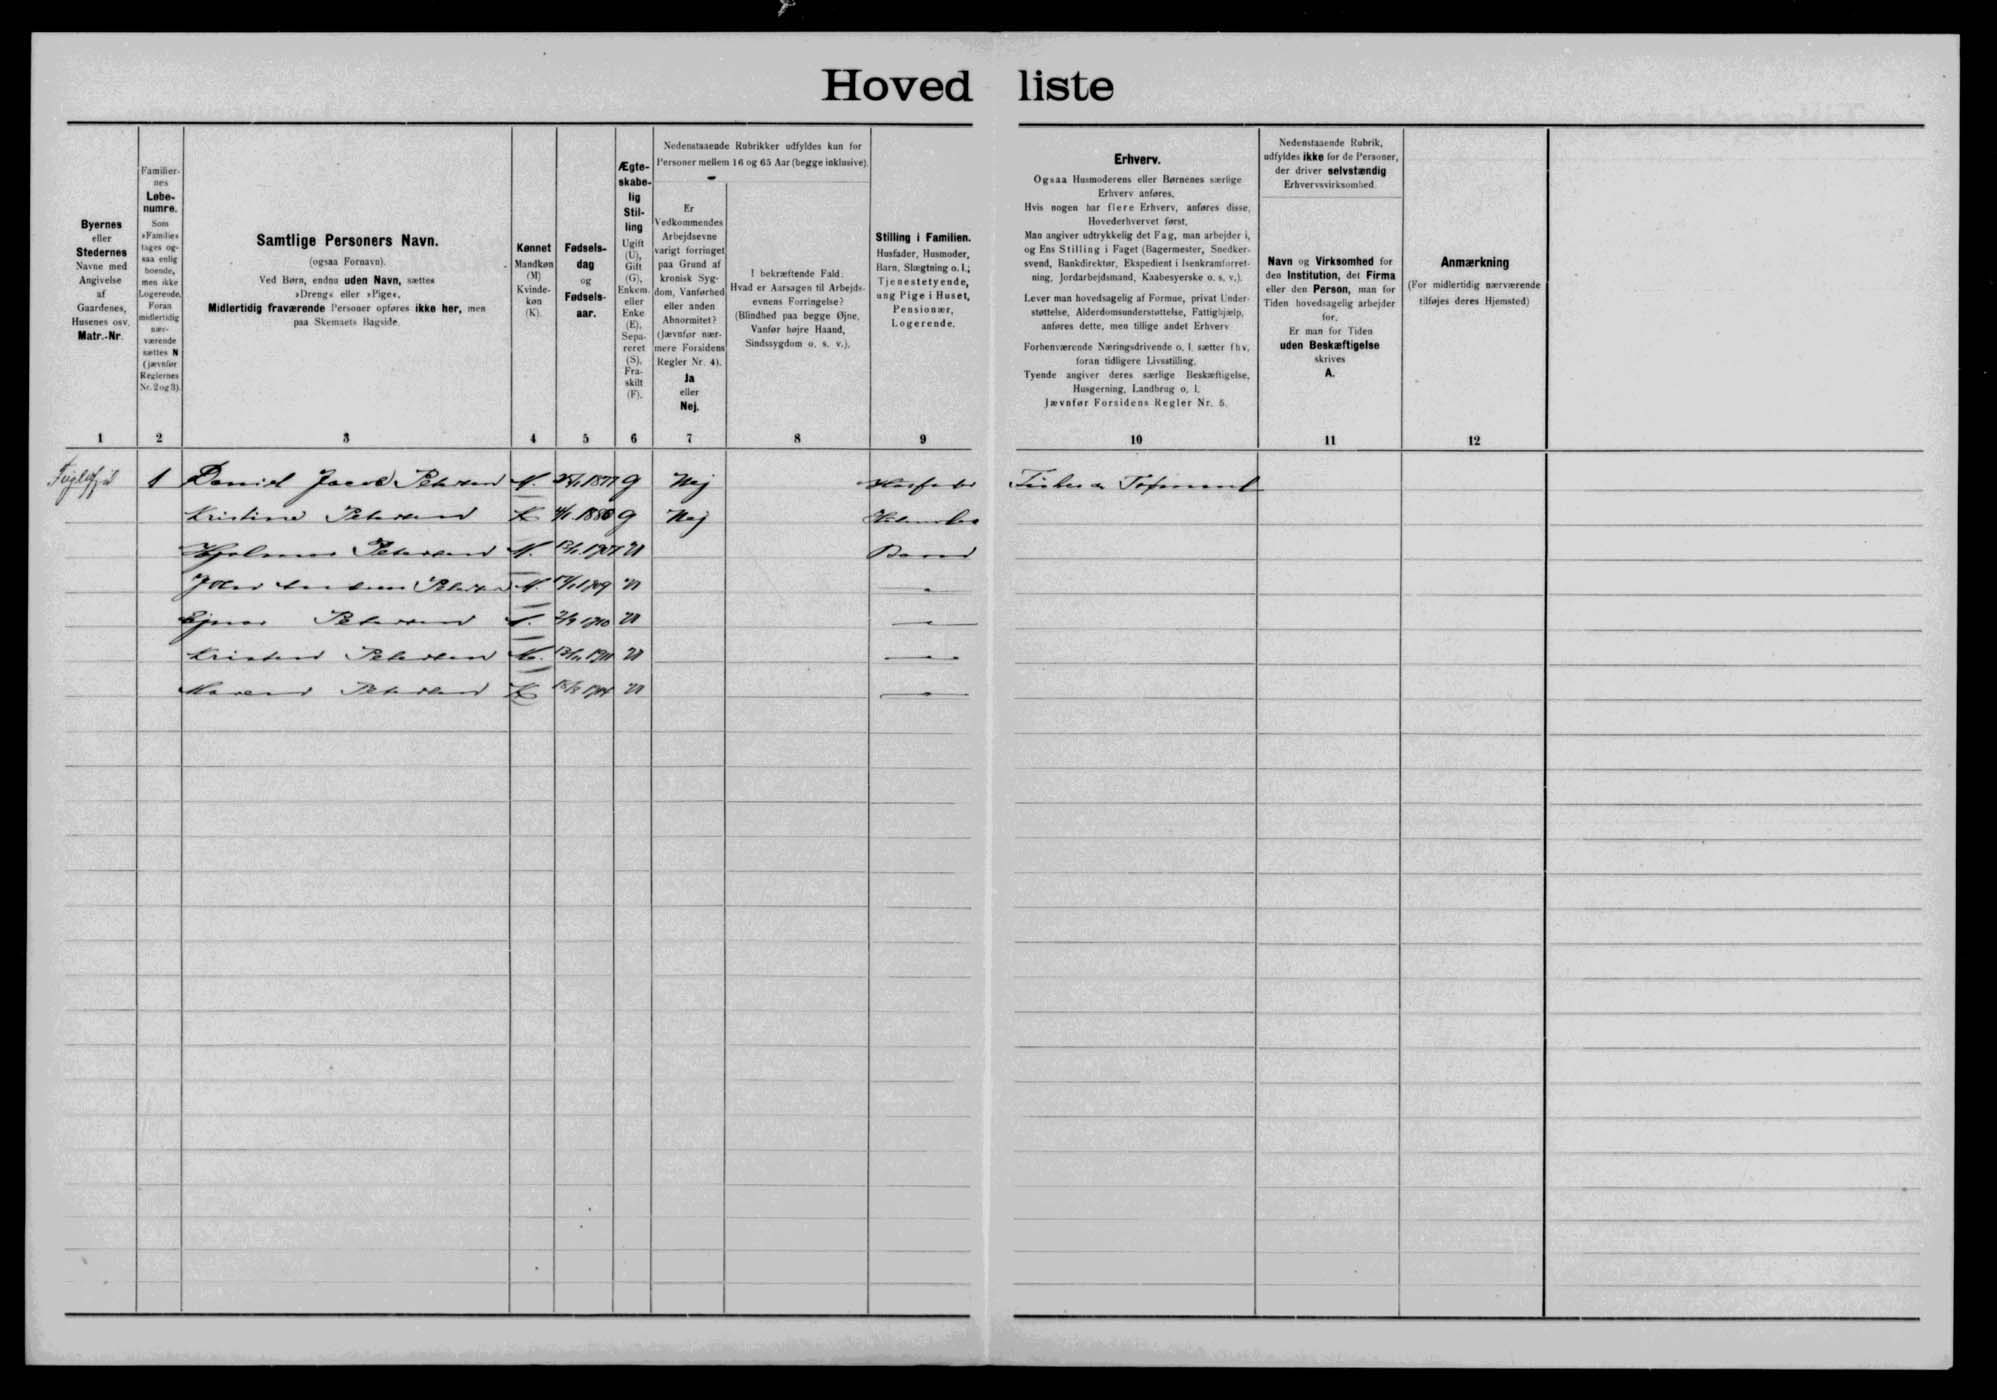 Hovedliste
Byernes
eller
Stedernes
Navne med
Angivelse
af
Gaardenes,
Husenes osv.
Matr.-Nr.
1
Familier-
nes
Løbe-
numre.
Som
»Familie«
tages og-
saa enlig
boende,
men ikke
Logerende.
Foran
midlertidig
nær-
værende
sættes N
(jævnfør
Reglernes
Nr. 2 og 3).
2
Samtlige Personers Navn.
(ogsaa Fornavn).
Ved Børn, endnu uden Navn, sættes
»Dreng« eller »Pige«.
Midlertidig fraværende Personer opføres ikke her, men
paa Skemaets Bagside.
3
Kønnet
Mandkøn
(M)
Kvinde-
køn
(K).
4
Fødsels-
dag
og
Fødsels-
aar.
5
Ægte-
skabe-
lig
Stil-
ling
Ugift
(U),
Gift
(G),
Enkem.
eller
Enke
(E),
Sepa-
reret
(S),
Fra-
skilt
(F).
6
Nedenstaaende Rubrikker udfyldes kun for
Personer mellem 16 og 65 Aar (begge inklusive).
Er
Vedkommendes
Arbejdsevne
varigt forringet
paa Grund af
kronisk Syg-
dom, Vanførhed
eller anden
Abnormitet?
(Jævnfør nær-
mere Forsidens
Regler Nr. 4).
Ja
eller
Nej.
7
I bekræftende Fald:
Hvad er Aarsagen til Arbejds-
evnens Forringelse?
(Blindhed paa begge Øjne,
Vanfør højre Haand,
Sindssygdom o. s. v.).
8
Stilling i Familien.
Husfader, Husmoder,
Barn, Slægtning o. l.;
Tjenestetyende,
ung Pige i Huset,
Pensionær,
Logerende.
9
Erhverv.
Ogsaa Husmoderens eller Børnenes særlige
Erhverv anføres.
Hvis nogen har flere Erhverv, anføres disse,
Hovederhvervet først.
Man angiver udtrykkelig det Fag, man arbejder i,
og Ens Stilling i Faget (Bagermester, Snedker-
svend, Bankdirektør, Ekspedient i Isenkramforret-
ning, Jordarbejdsmand, Kaabesyerske o. s. v.).
Lever man hovedsagelig af Formue, privat Under-
støttelse, Alderdomsunderstøttelse, Fattighjælp,
anføres dette, men tillige andet Erhverv
Forhenværende Næringsdrivende o. l. sætter fhv.
foran tidligere Livsstilling.
Tyende angiver deres særlige Beskæftigelse,
Husgerning, Landbrug o. l.
Jævnfør Forsidens Regler Nr. 5.
10
Nedenstaaende Rubrik,
udfyldes ikke for de Personer,
der driver selvstændig
Erhvervsvirksomhed.
Navn og Virksomhed for
den Institution, det Firma
eller den Person, man for
Tiden hovedsagelig arbejder
for.
Er man for Tiden
uden Beskæftigelse
skrives
A.
11
Anmærkning
(For midlertidig nærværende
tilføjes deres Hjemsted)
12
1 Daniel Jacob Petersen M. 1877 G Nej Husfader
Kristine Petersen K 1880 G Nej
Hjalmar Petersen M. 1907 U Barn
Petersen M. 1909 U
Ejnar Petersen 1910 U
Petersen M. 1911 U
Maren Petersen K U